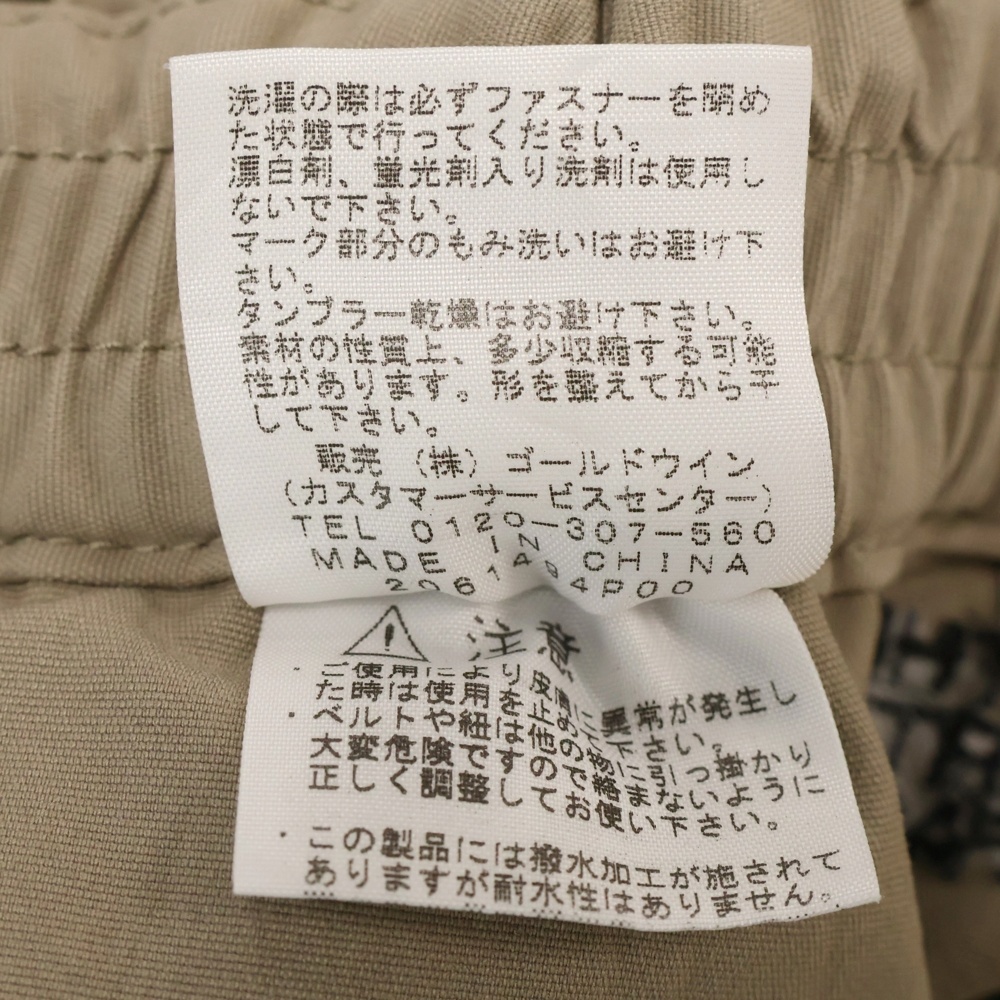 洗濯の際は必ずファスナーを閉め
た状態で行ってください。
漂白剤、蛍光剤入り洗剤は使用し
ないで下さい。
マーク部分のもみ洗いはお避け下
さい。
タンブラー乾燥はお避け下さい。
素材の性質上、多少収縮する可能
性があります。形を整えてから干
して下さい。
販売 (株) ゴールドウイン
(カスタマーサービスセンター)
TEL 0120-307-560
MADE IN CHINA
206194P00
注意
・ご使用により皮膚に異常が発生し
た時は使用を止め下さい。
・ベルトや紐はその他の物に引っ掛かり
大変危険ですので絡まないように
正しく調整してお使い下さい。
・この製品には撥水加工が施されて
ありますが耐水性はありません。